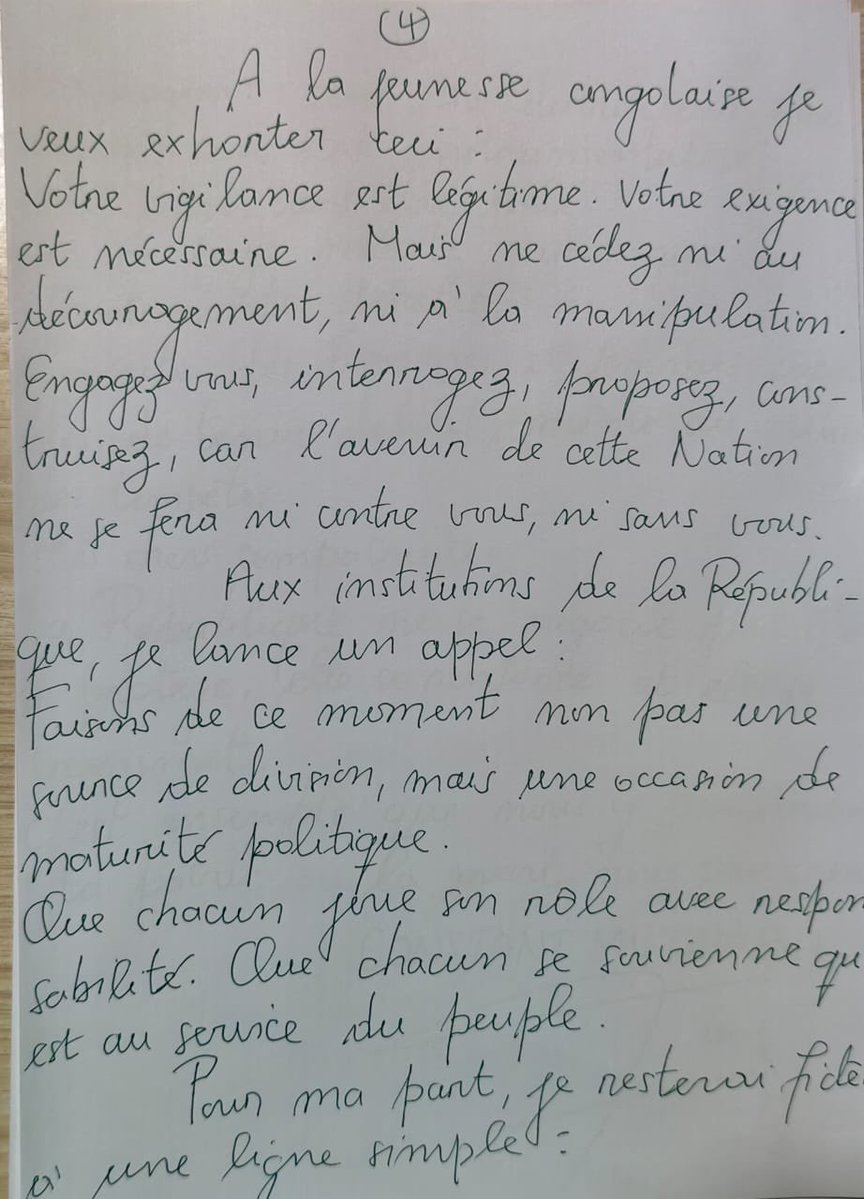 (4)
A la jeunesse congolaise je
veux exhorter ceci :
Votre vigilance est légitime. Votre exigence
est nécessaire. Mais ne cédez ni au
découragement, ni à la manipulation.
Engagez vous, interrogez, proposez, cons-
truisez, car l'avenir de cette Nation
ne se fera ni contre vous, ni sans vous.
Aux institutions de la Républi-
que, je lance un appel :
Faisons de ce moment non pas une
source de division, mais une occasion de
maturité politique.
Que chacun joue son rôle avec respon
sabilité. Que chacun se souvienne qu
est au service du peuple.
Pour ma part, je resterai fidè
à une ligne simple :